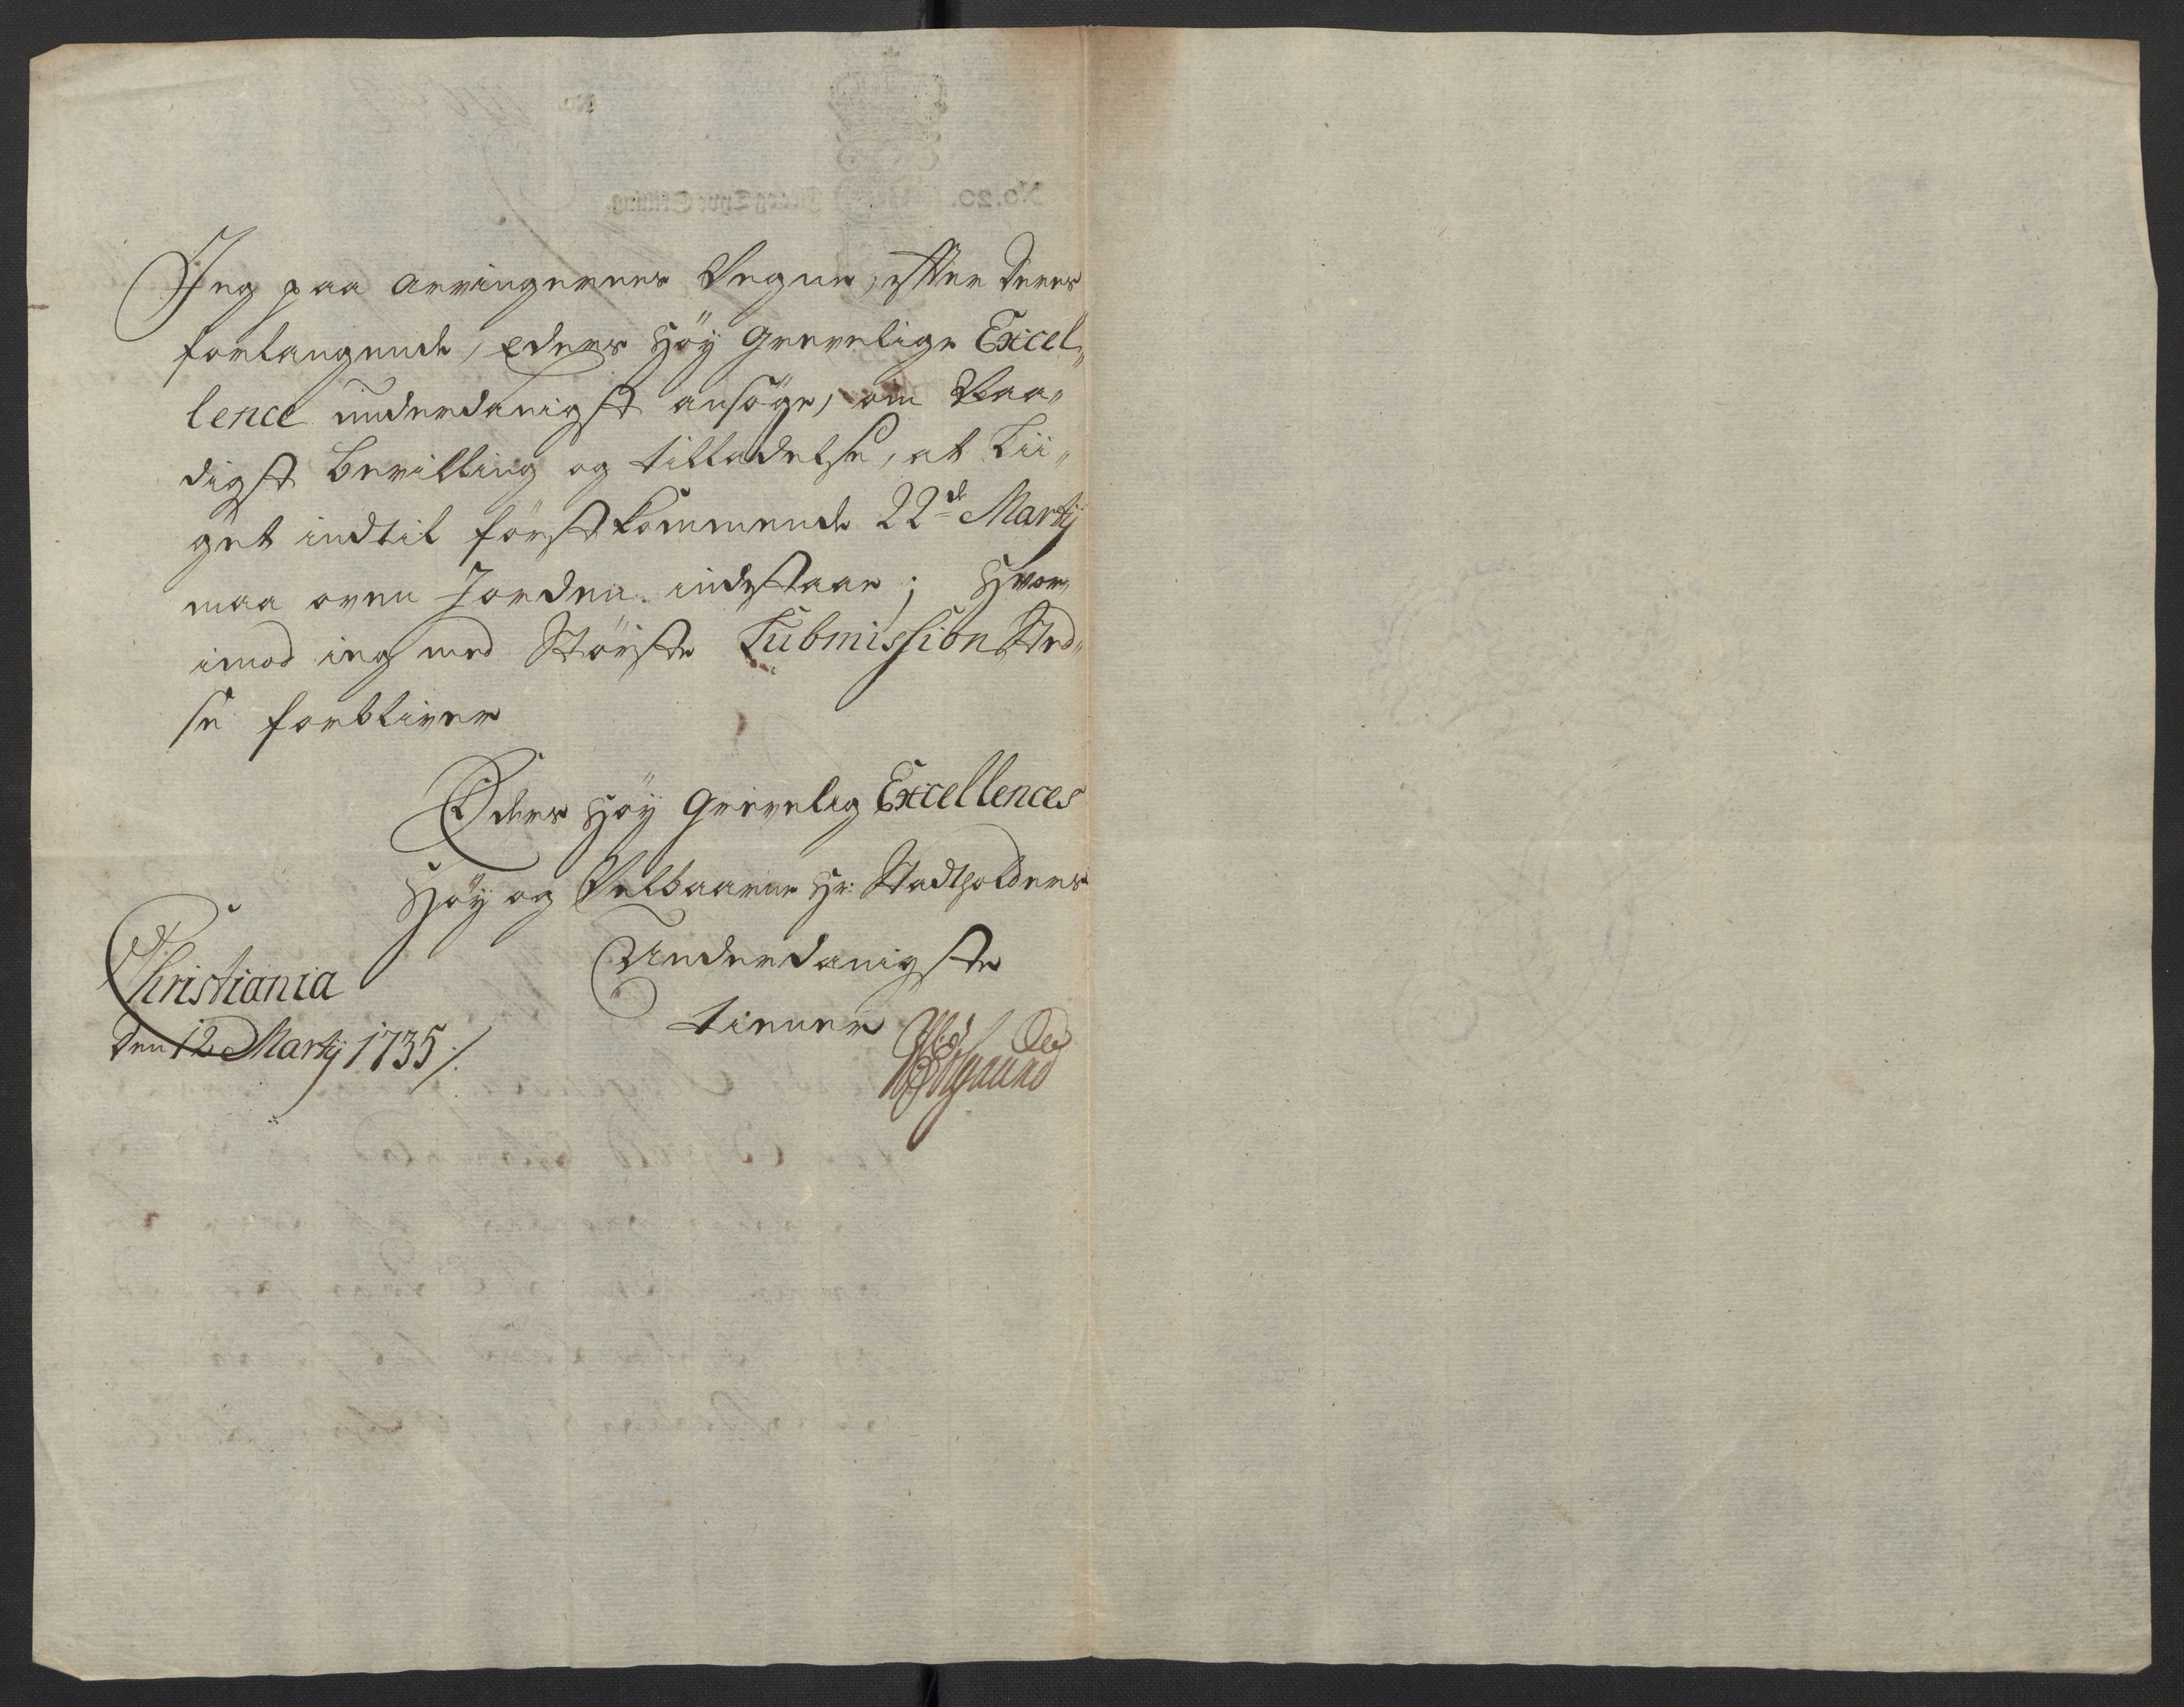 Jeg paa arvingernes Vegne, efter deres
forlangende, Eders Høy Grevelige Excel„
lence underdanigst ansøge, om Naa„
digst bevilling og tilladelse, at Lii„
get indtil først kommende 22de Martij
maa oven Jorden indestaae; Hvor
imod ieg med Største Submission Sted„
se forbliver
Eders Høy Grevelig Excellences
Høy og Velbaarne Hr: Stadtholders
Christiania
Underdanigste
den 12 Martij 1735 /.
tiener